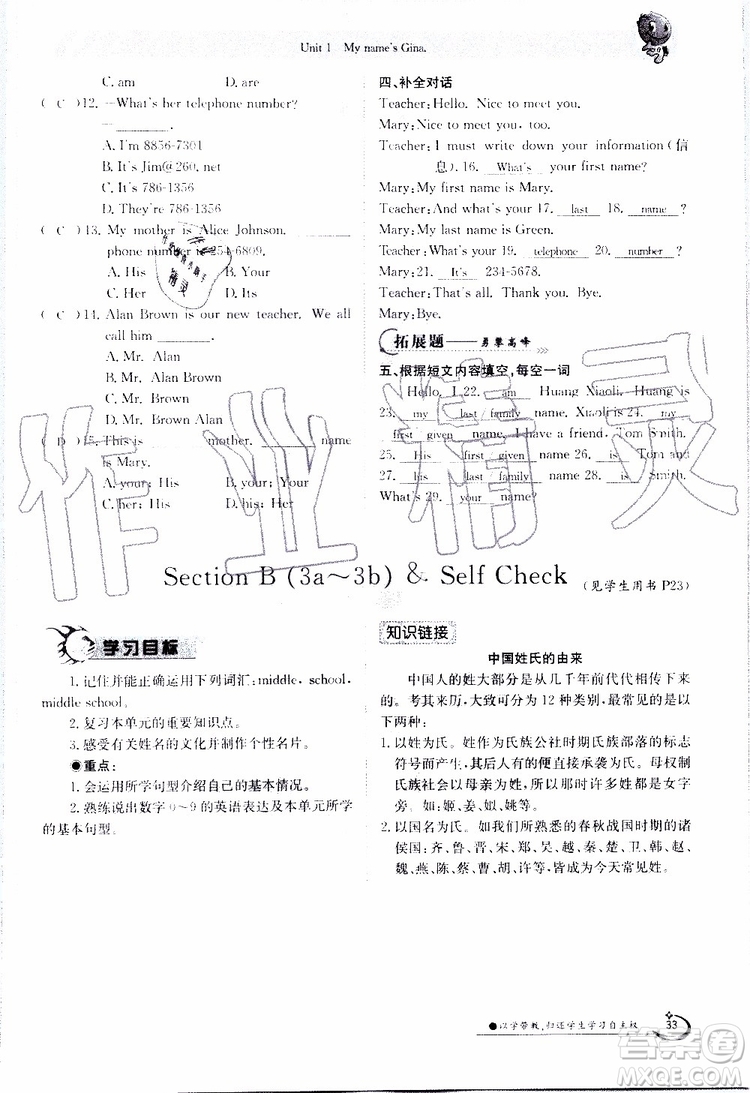 Unit 1 My name's Gina.
C. am D. are
( C )12. —What's her telephone number?
—________.
A. I'm 8856-7301
B. It's Jim@260. net
C. It's 786-1356
D. They're 786-1356
( C )13. My mother is Alice Johnson. ________
phone number is 254-6809.
A. His B. Your
C. Her D. Its
( C )14. Alan Brown is our new teacher. We all
call him ________.
A. Mr. Alan
B. Alan Brown
C. Mr. Brown
D. Mr. Alan Brown
( D )15. This is ________ mother. ________ name
is Mary.
A. your; His B. you; Your
C. her; His D. his; Her
四、补全对话
Teacher: Hello. Nice to meet you.
Mary: Nice to meet you, too.
Teacher: I must write down your information (信
息). 16. What's your first name?
Mary: My first name is Mary.
Teacher: And what's your 17. last 18. name ?
Mary: My last name is Green.
Teacher: What's your 19. telephone 20. number ?
Mary: 21. It's 234-5678.
Teacher: That's all. Thank you. Bye.
Mary: Bye.
拓展题——勇攀高峰
五、根据短文内容填空,每空一词
Hello, I 22. am Huang Xiaoli. Huang is
23. my last/family name. Xiaoli is 24. my
first/given name. I have a friend, Tom Smith.
25. His first/given name 26. is Tom and
27. his last/family name 28. is Smith.
What's 29. your name?
Section B (3a～3b) & Self Check (见学生用书 P23)
学习目标
1. 记住并能正确运用下列词汇: middle, school,
middle school.
2. 复习本单元的重要知识点。
3. 感受有关姓名的文化并制作个性名片。
●重点:
1. 会运用所学句型介绍自己的基本情况。
2. 熟练说出数字 0～9 的英语表达及本单元所学
的基本句型。
知识链接
中国姓氏的由来
中国人的姓大部分是从几千年前代代相传下来
的。考其来历,大致可分为 12 种类别,最常见的有以
下两种:
1. 以姓为氏。姓作为氏族公社时期氏族部落的标志
符号而产生,其后人有的便直接承袭为氏。母权制
氏族社会以母亲为姓,所以那时许多姓都是女字
旁。如:姬、姜、姒、姚等。
2. 以国名为氏。如我们所熟悉的春秋战国时期的诸
侯国:齐、鲁、晋、宋、郑、吴、越、秦、楚、卫、韩、赵、
魏、燕、陈、蔡、曹、胡、许等,皆成为今天常见姓。
●以学带教,归还学生学习自主权 33
作业精灵
答案圈
MXQE.COM